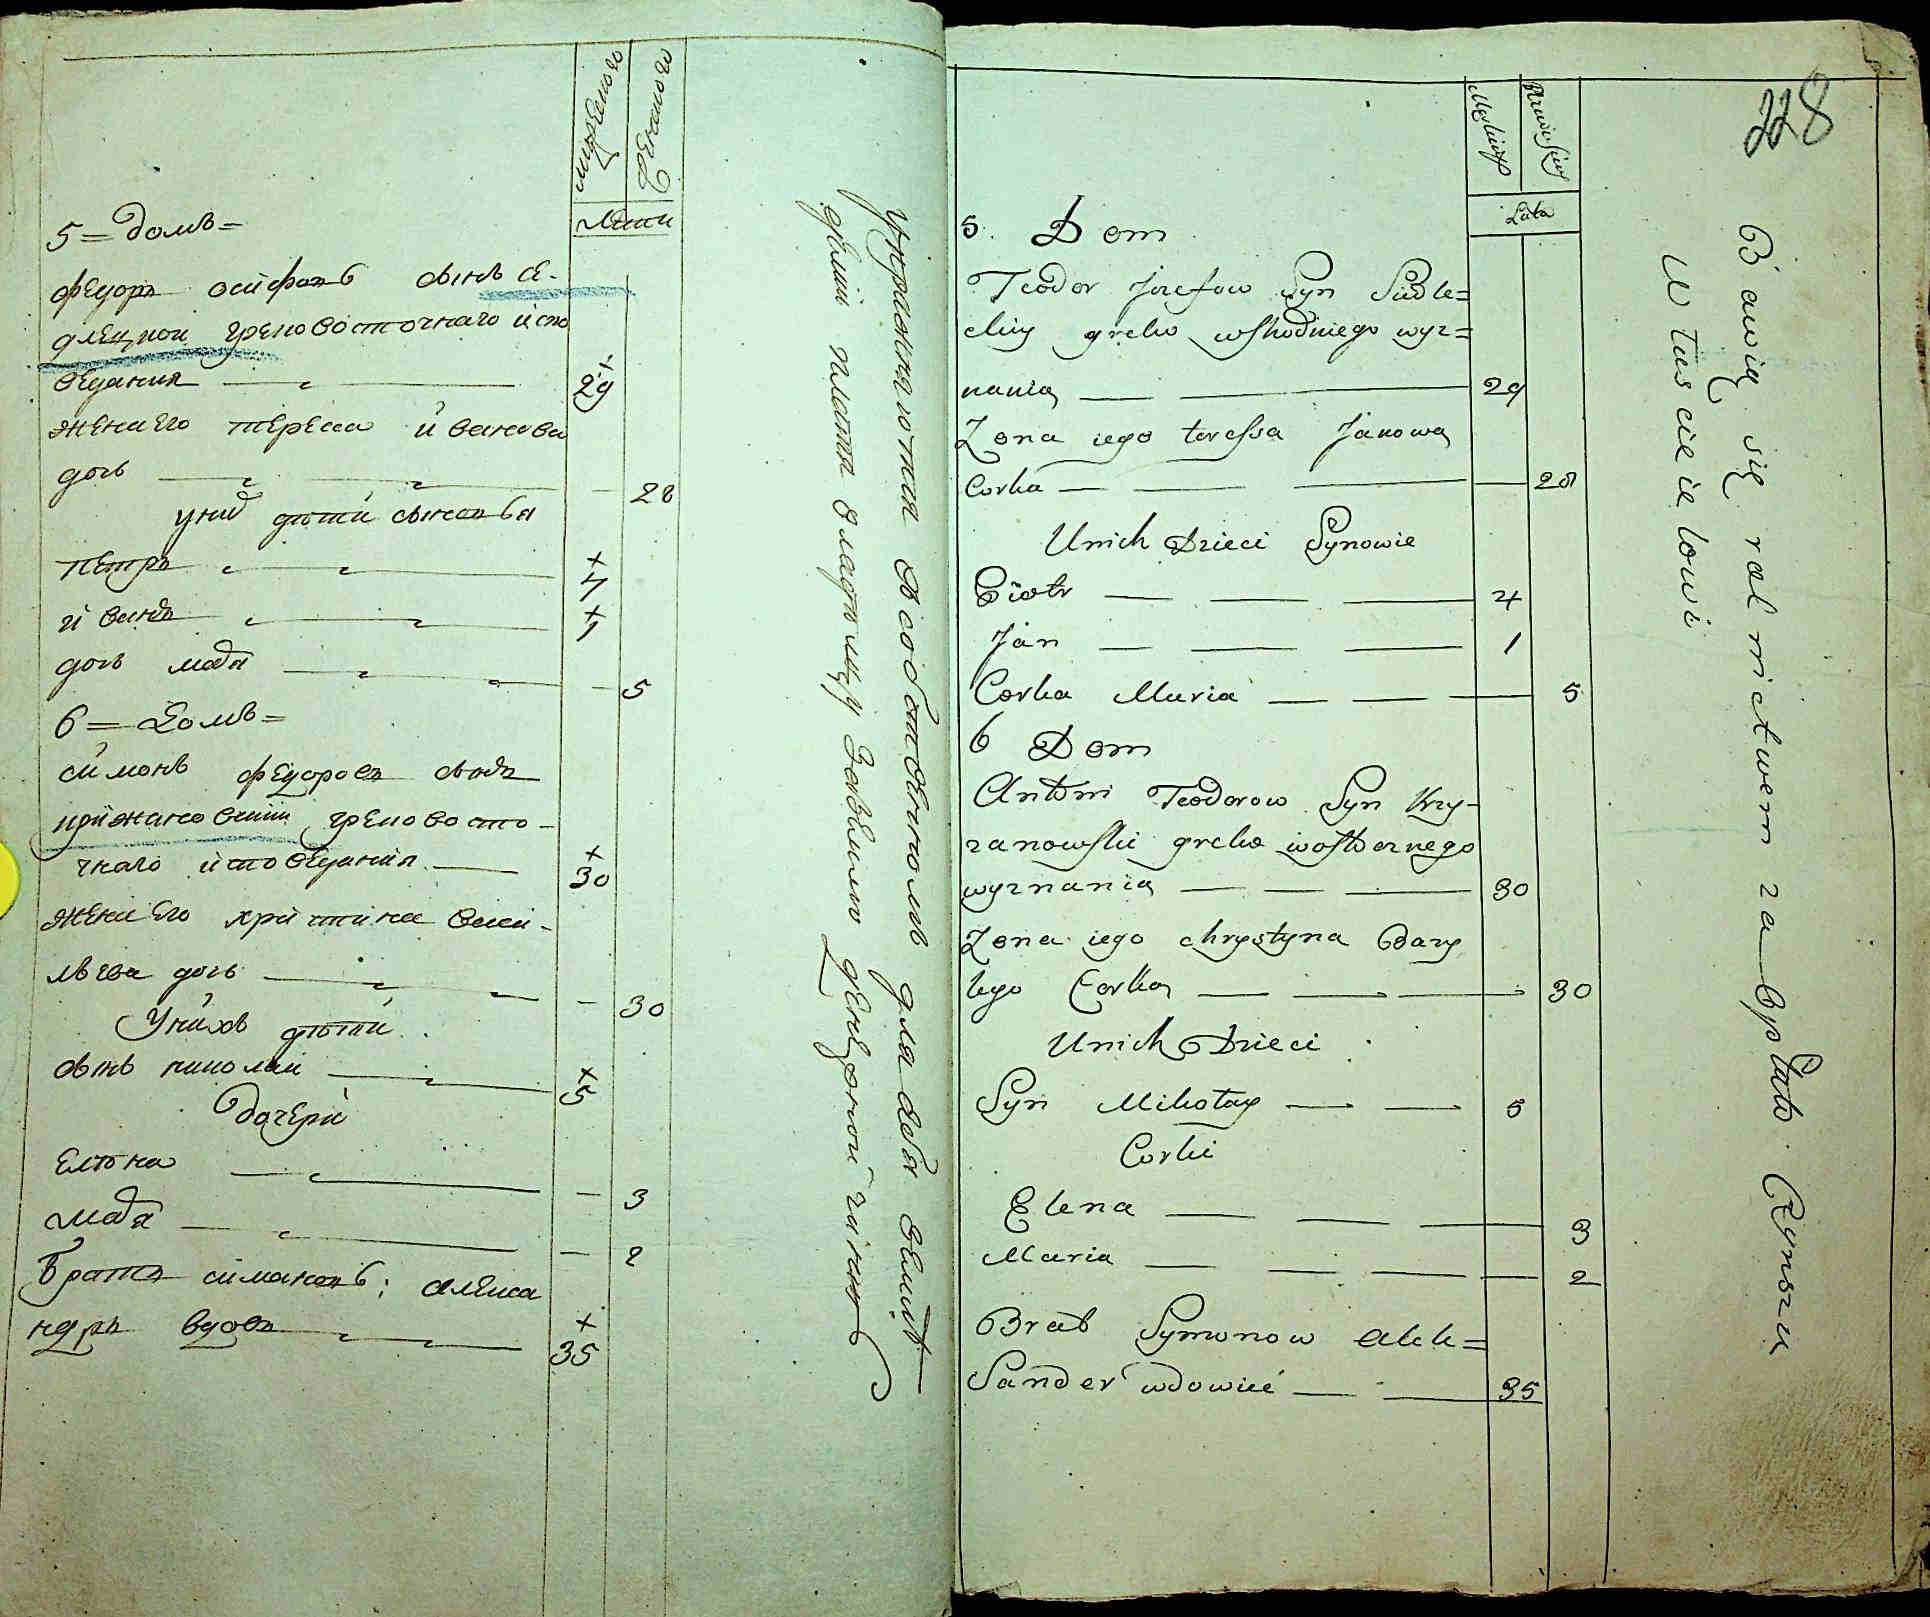 мужескаго
женскаго
Лѣта
5 = домъ =
федоръ осифовъ сынъ се-
длецкои грековосточнаго испо
веданиа 29
жена его тереса иванова
дочь 28
у них дѣти сыновья
петръ 4
иванъ 1
дочь мария 5
6 = Домъ =
симонъ федоровъ сынъ
крижановскии грековосто-
чнаго исповедания 30
жена его христина васи-
льева дочь 30
У нихъ дѣти
сынъ николаи 5
дочери
елена 3
мария 2
братъ симоновъ: алекса
ндръ вдовъ 35
упражняются въ собственномъ для себя земле-
делии платя владельцу
228
Męskiej
Lata
5. Dom
Teodor Jozefow Syn Siedle=
cki greko wshodniego wyz=
nania 29
Zona iego teressa Janowa
Corka 28
U nich Dzieci Synowie
Piotr 4
Jan 1
Corka Maria 5
6 Dom
Antoni Teodorow Syn Krzy-
zanowski greko
wyznania 30
Zona iego chrystyna Bazy
lego Corka 30
U nich Dzieci
Syn Mikołay 5
Corki
Elena 3
Maria 2
Brat Symonow Alek=
Sander wdowiec 35
Bawią się rolnictwem za opłatą Czynszu
w